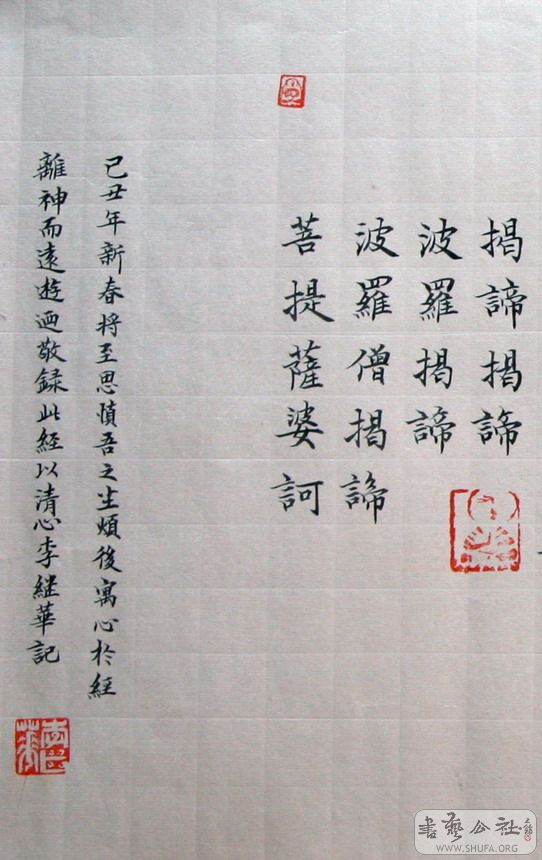 揭諦揭諦
波羅揭諦
波羅僧揭諦
菩提薩婆訶
己丑年新春將至思慎吾之生煩後寓心於經
離神而遠遊迺敬録此經以清心李継華記
書藝公社
WWW.SHUFA.ORG